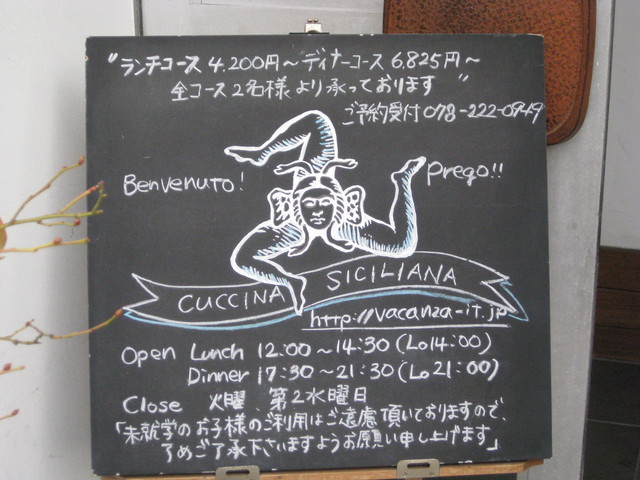 "ランチコース4,200円〜ディナーコース6,825円〜
全コース2名様より承っております"
ご予約受付078-222-0949
Benvenuto!
Prego!!
CUCCINA SICILIANA
http://vacanza-it.jp
Open Lunch 12:00〜14:30(Lo14:00)
Dinner 17:30〜21:30(Lo21:00)
Close 火曜、第2水曜日
「未就学のお子様のご利用はご遠慮頂いておりますので、
予めご了承下さいますようお願い申し上げます」